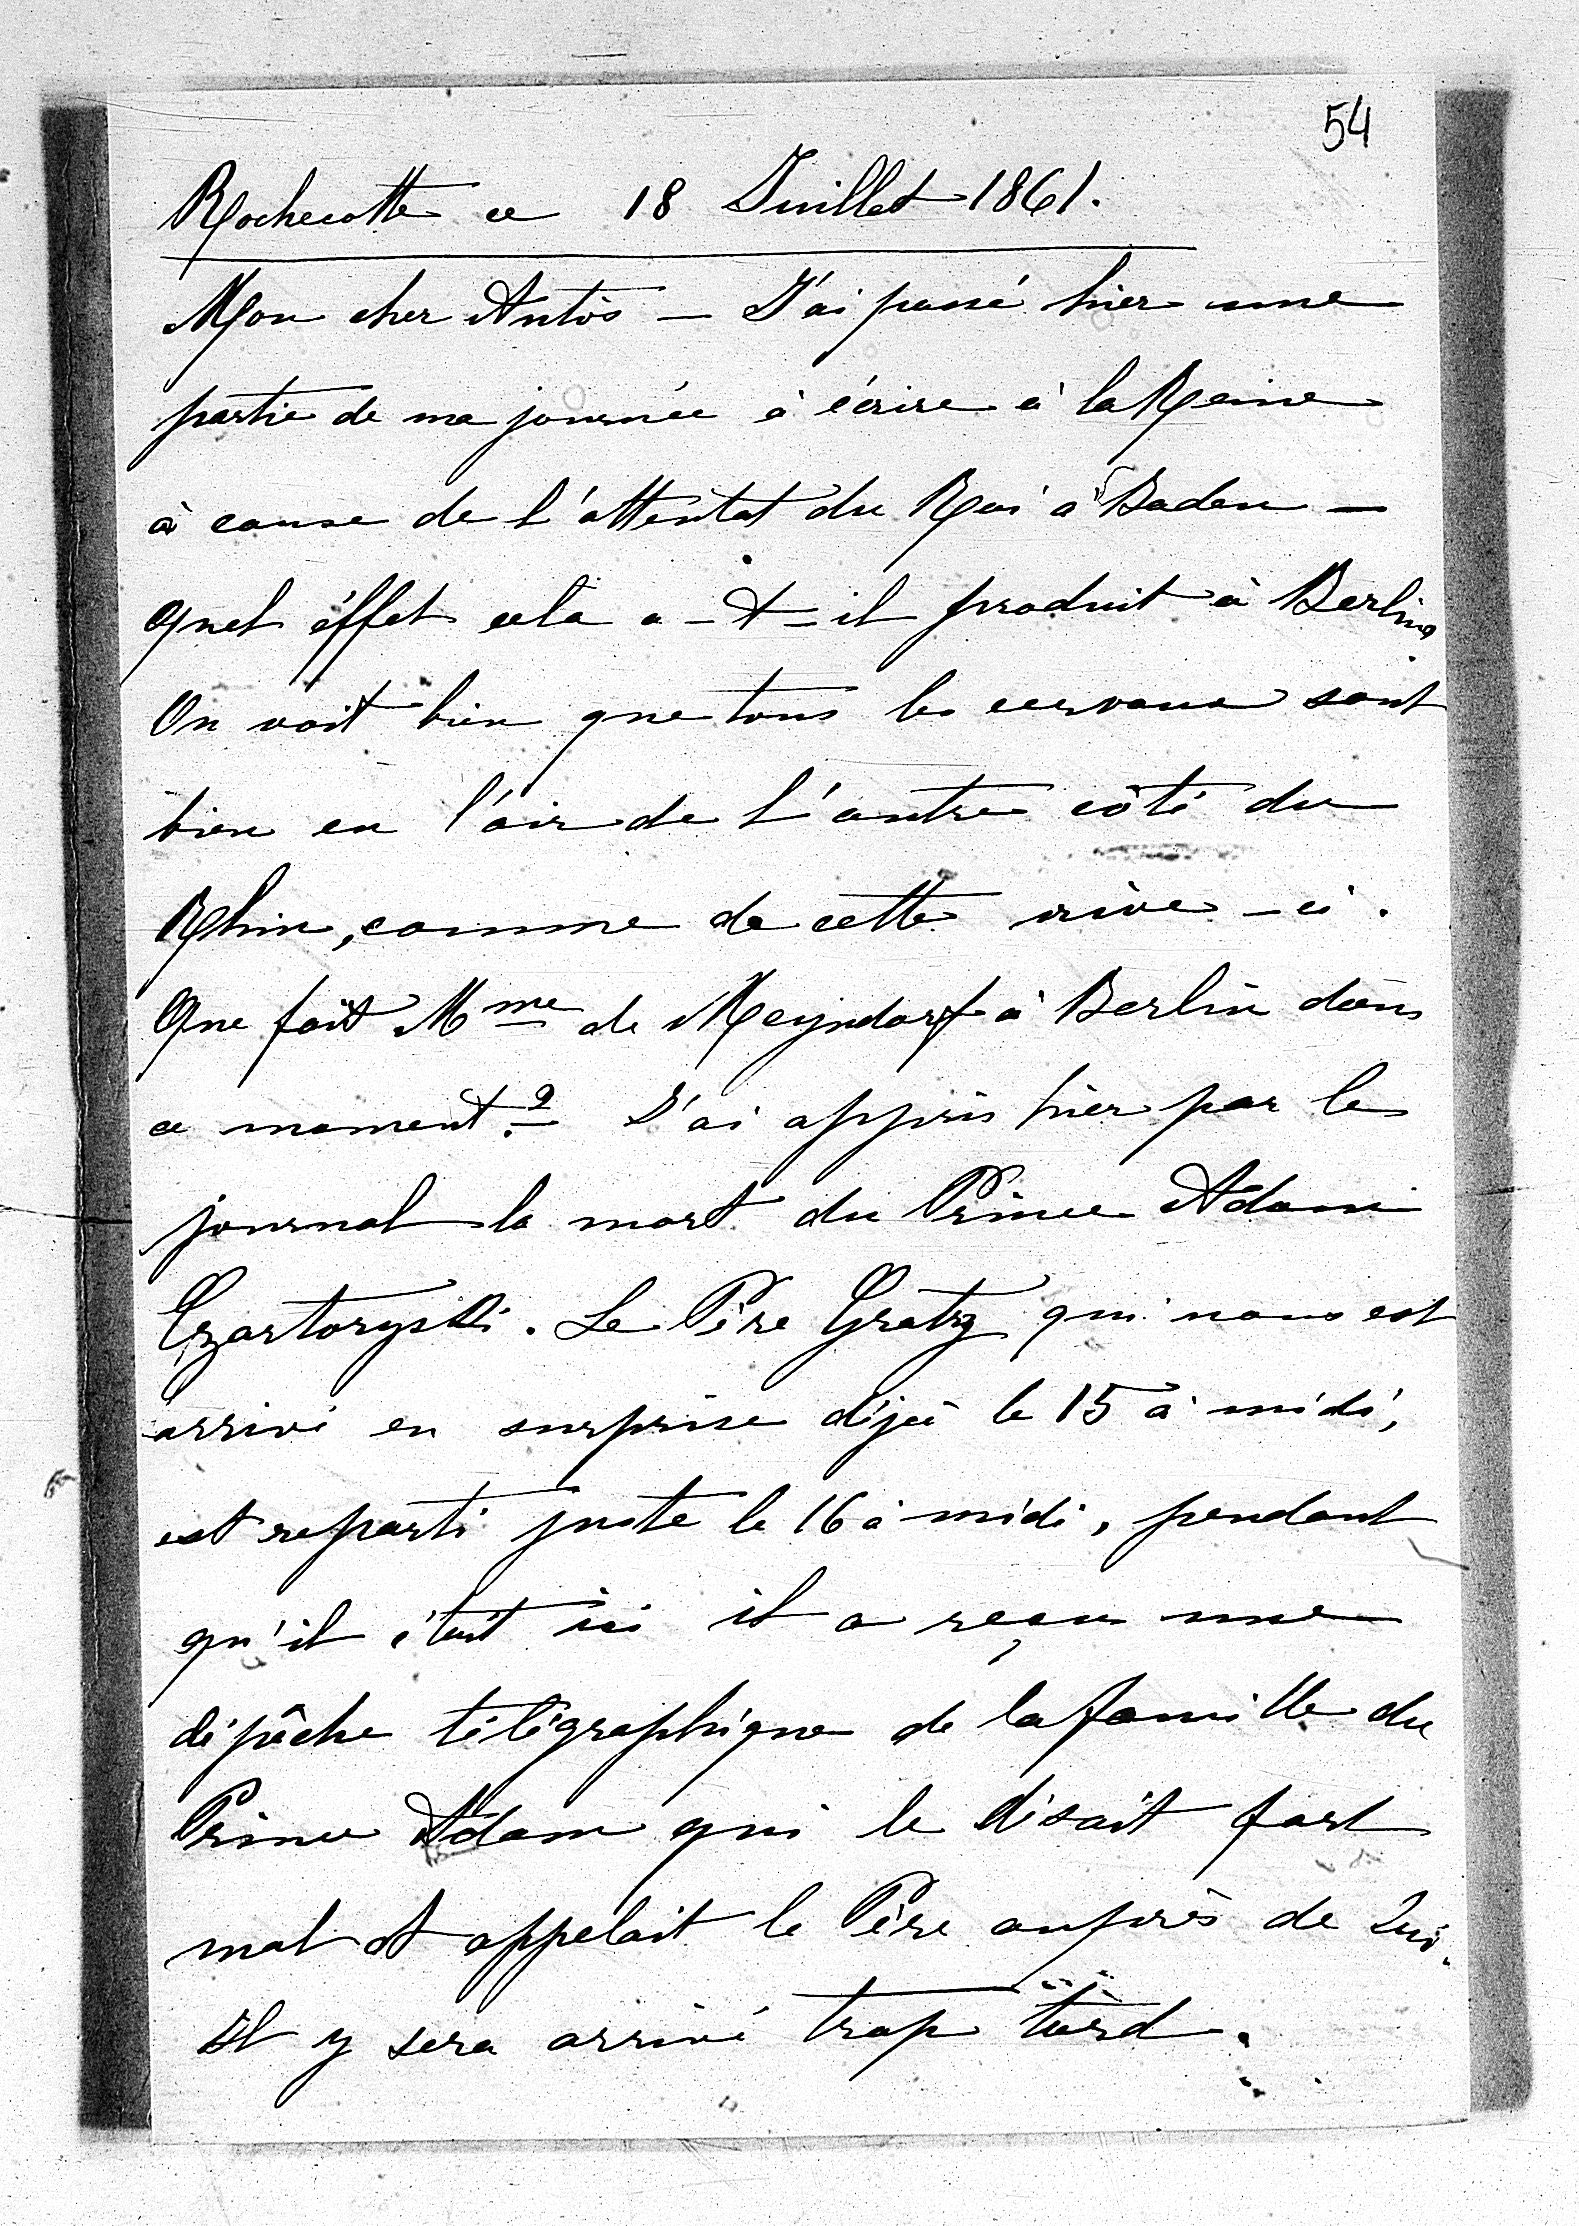 54
Rochecotte ce 18 Juillet 1861.
Mon cher Antòs — J'ai passé hier une
partie de ma journée à écrire à la Reine
à cause de l'attentat du Roi à Baden —
Quel éffet cela a-t-il produit à Berlin?
On voit bien que tous les cerveaux sont
bien en l'air de l'autre côté du
Rhin, comme de cette rive-ci.
Que fait Mme de Meyndorf à Berlin dans
ce moment? J'ai appris hier par le
journal la mort du Prince Adam
Czartoryski. Le Père Gratz qui nous est
arrivé en surprise déjà le 15 à midi,
est reparti juste le 16 à midi, pendant
qu'il était ici il a reçu une
dépêche télégraphique de la famille du
Prince Adam qui le disait fort
mal et appelait le Père auprès de Lui.
Il y sera arrivé trop tard.